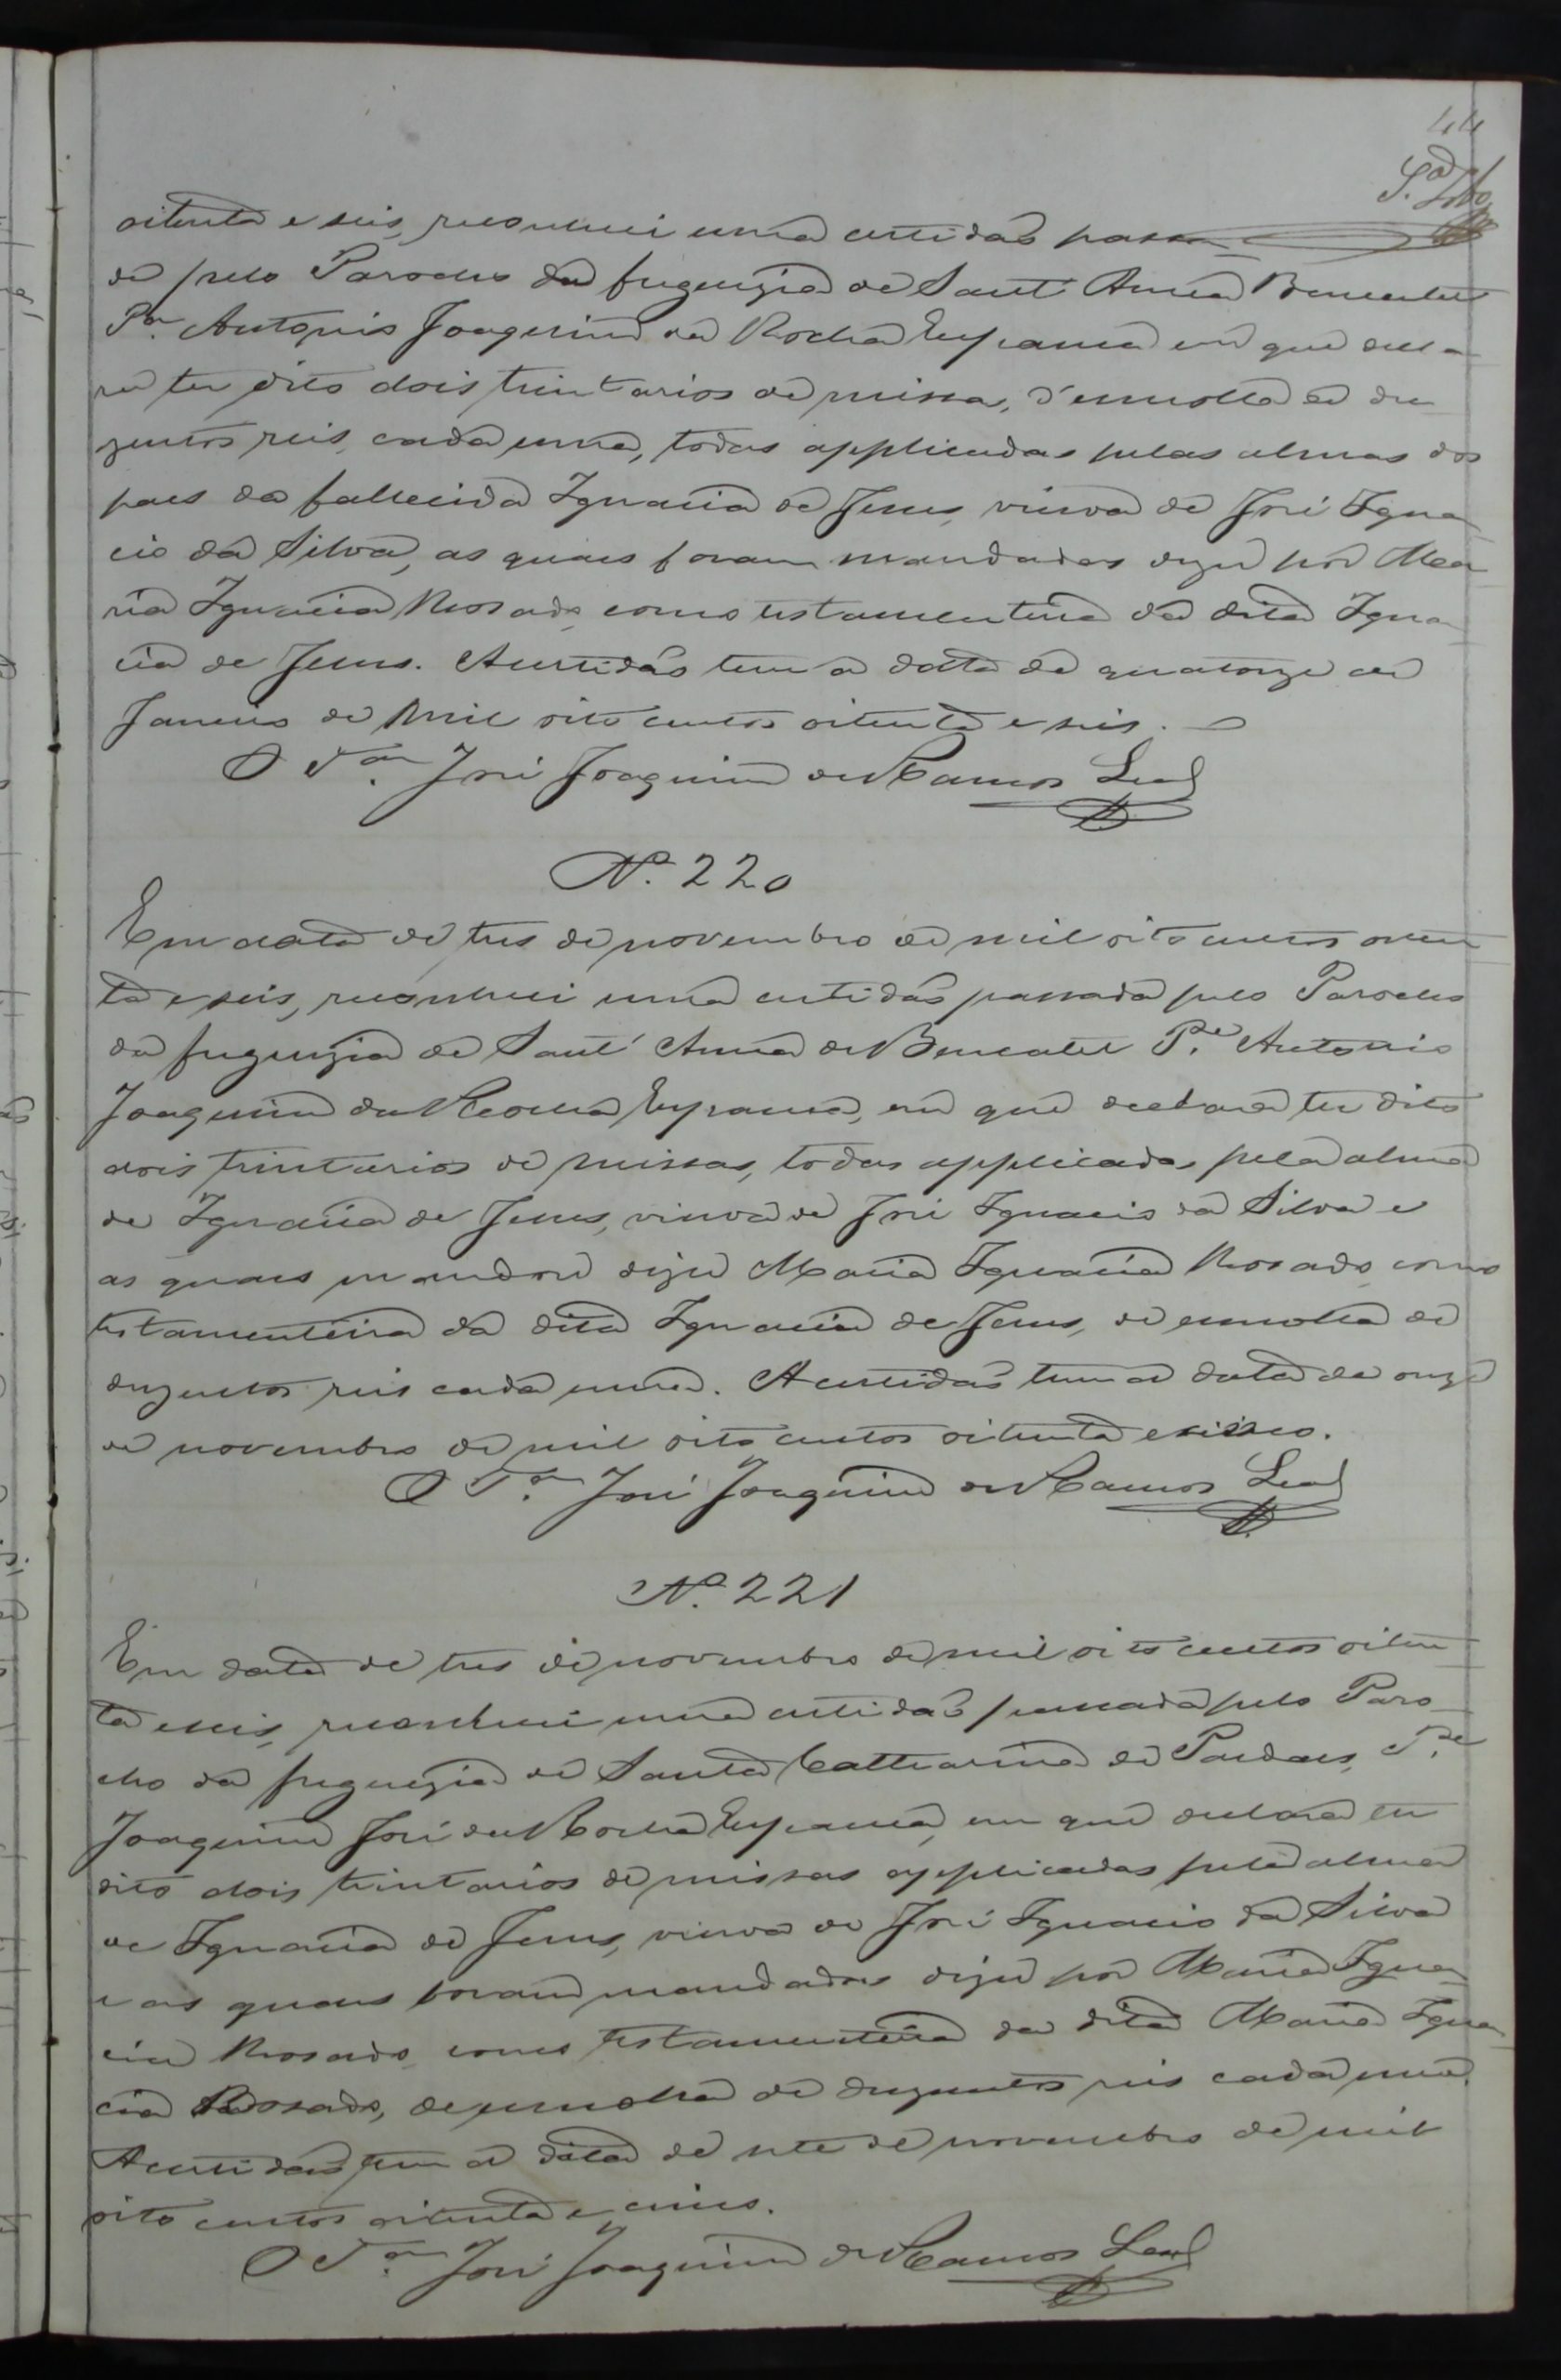 44
oitenta e seis, reconheci uma certidão passa-
da pelo Parocho da freguezia de Sant' Anna Bencatel
P.e Antonio Joaquim da Rocha Espanca em que decla-
ra ter dito dois trintarios de missa, d'esmolla de du
zentos reis, cada uma, todas applicadas pelas almas dos
paes da fallecida Ignacia de Jesus, viuva de José Igna
cio da Silva, as quaes foram mandadas dizer por Ma
ria Ignacia Rosado, como testamenteira da dita Igna
cia de Jesus. A certidão tem a data de quatorze de
Janeiro de mil oito centos oitenta e seis.
O T.am José Joaquim de Ramos Leal
N.º 220
Em data de tres de novembro de mil oito centos oiten
ta e seis, reconheci uma certidão passada pelo Parocho
da freguezia de Sant' Anna de Bencatel P.e Antonio
Joaquim da Rocha Espanca, em que declara ter dito
dois trintarios de missas, todas applicadas pela alma
de Ignacia de Jesus, viuva de José Ignacio da Silva e
as quaes mandou dizer Maria Ignacia Rosado, como
testamenteira da dita Ignacia de Jesus, de esmolla de
duzentos reis cada uma. A certidão tem a data de onze
de novembro de mil oito centos oitenta e cinco.
O T.am José Joaquim de Ramos Leal
N.º 221
Em data de tres de novembro de mil oito centos oiten
ta e seis, reconheci uma certidão passada pelo Paro
cho da freguezia de Santa Catharina de Pardaes, P.e
Joaquim José da Rocha Espanca, em que declara ter
dito dois trintarios de missas applicadas pela alma
de Ignacia de Jesus, viuva de José Ignacio da Silva
e as quaes foram mandadas dizer por Maria Igna
cia Rosado, como testamenteira da dita Maria Igna
cia Rosado, de esmolla de duzentos reis cada uma.
A certidão tem a data de sete de novembro de mil
oito centos oitenta e cinco.
O T.am José Joaquim de Ramos Leal